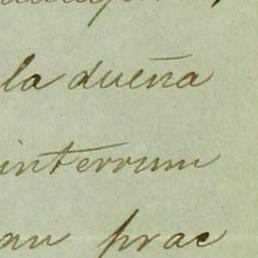 la dueña
interrum
an prac